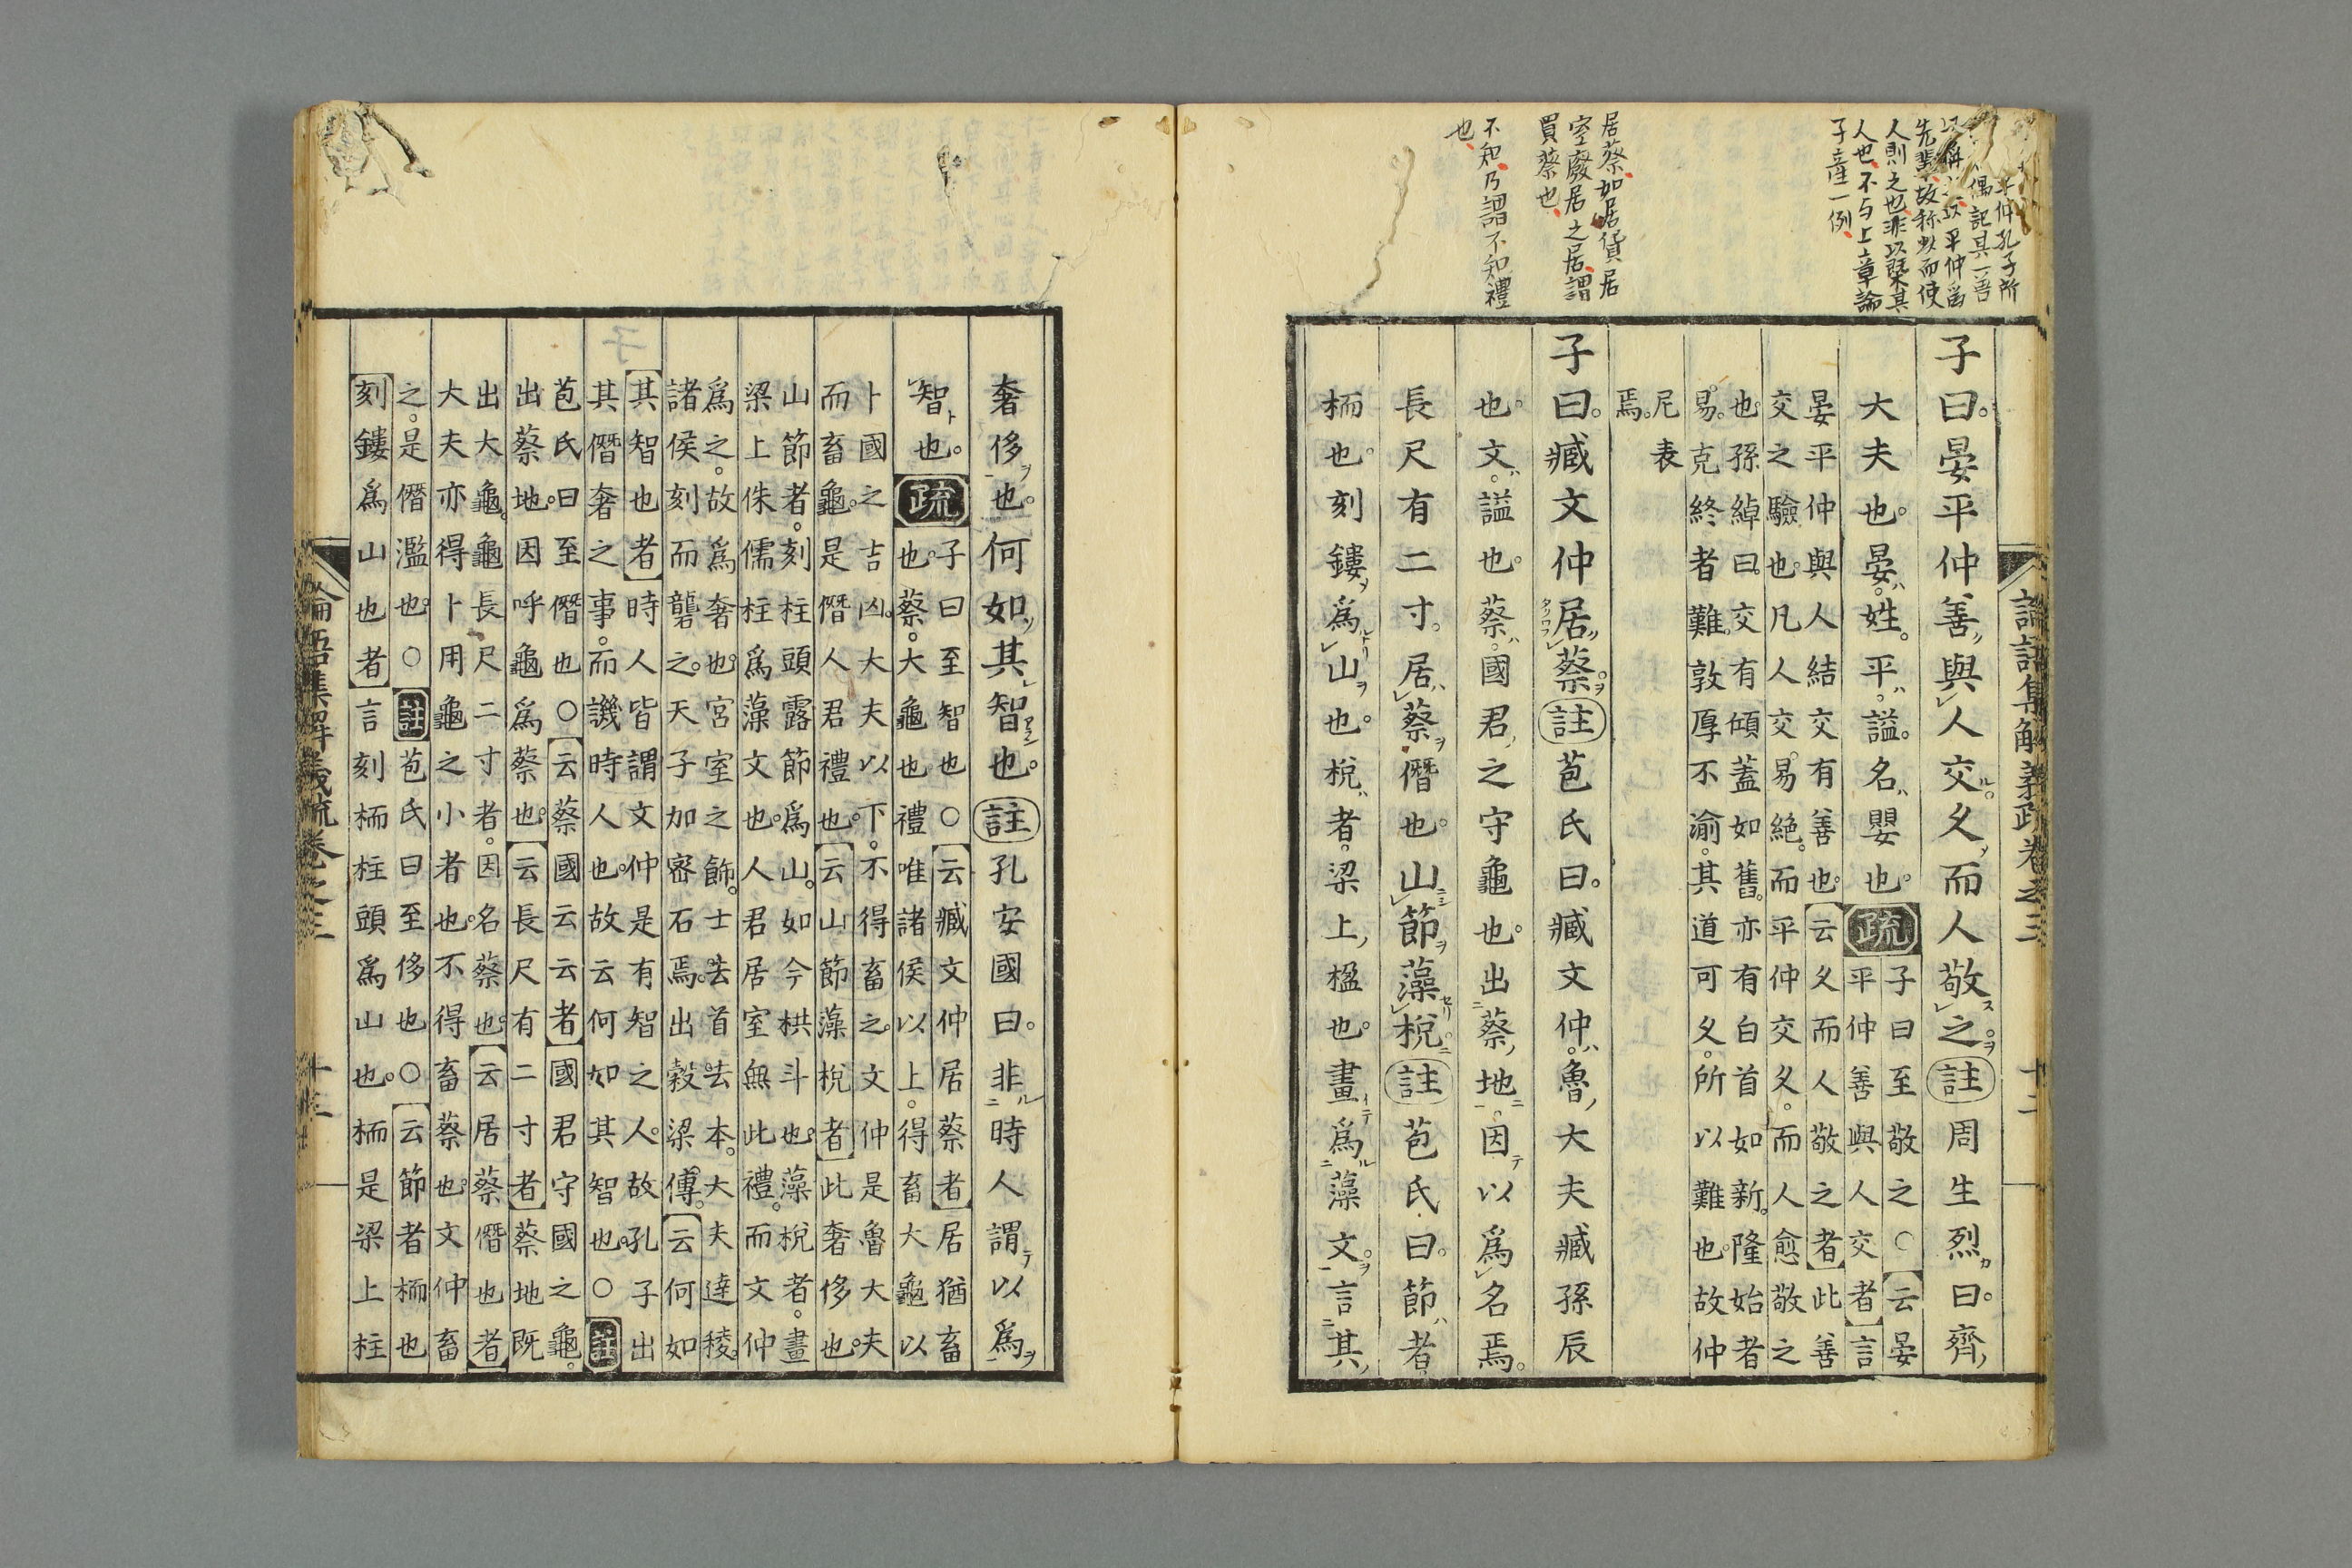 仲孔子所
偶記其一善
以平仲爲
先輩故称以而使
人則之也非以槩其
人也不与上章論
子産一例
居蔡如居貨居
室廢居之居謂
買蔡也
不知乃謂不知禮
也
論語集解義疏卷之三 十二
子曰。晏平仲善與人交。久而人敬之。註周生烈曰。齊
大夫也。晏。姓。平。謚。名嬰也。疏子曰至敬之○云晏
平仲善與人交者言
晏平仲與人結交有善也。云久而人敬之者此善
交之驗也。凡人交易絕。而平仲交久。而人愈敬之
也。孫綽曰。交有傾蓋如舊。亦有白首如新。隆始者
易。克終者難。敦厚不渝。其道可久。所以難也。故仲
尼表
焉。
子曰。臧文仲居蔡。註苞氏曰。臧文仲。魯大夫臧孫辰
也。文。謚也。蔡。國君之守龜也。出蔡地。因以爲名焉。
長尺有二寸。居蔡僭也。山節藻梲註苞氏曰。節者
栭也。刻鏤爲山也。梲者。梁上楹也。畫爲藻文。言其
奢侈也。何如其智也。註孔安國曰。非時人謂以爲
智也。疏子曰至智也○云臧文仲居蔡者居猶畜
也。蔡。大龜也禮唯諸侯以上。得畜大龜以
卜國之吉凶。大夫以下。不得畜之。文仲是魯大夫
而畜龜。是僭人君禮也。云山節藻梲者此奢侈也。
山節者。刻柱頭露節爲山。如今栱斗也。藻梲者。畫
梁上侏儒柱爲藻文也。人君居室無此禮。而文仲
爲之。故爲奢也。宮室之飾。士去首去本。大夫達稜。
諸侯刻而礱之。天子加密石焉。出穀梁傳。云何如
其智也者時人皆謂文仲是有智之人。故孔子出
其僭奢之事。而譏時人也。故云何如其智也。○註
苞氏曰至僭也○云蔡國云云者國君守國之龜。
出蔡地。因呼龜爲蔡也。云長尺有二寸者蔡地既
出大龜。龜長尺二寸者。因名蔡也。云居蔡僭也者
大夫亦得卜用龜之小者也。不得畜蔡也。文仲畜
之。是僭濫也。○註苞氏曰至侈也○云節者栭也
刻鏤爲山也者言刻栭柱頭爲山也。栭是梁上柱
論語集解義疏卷之三